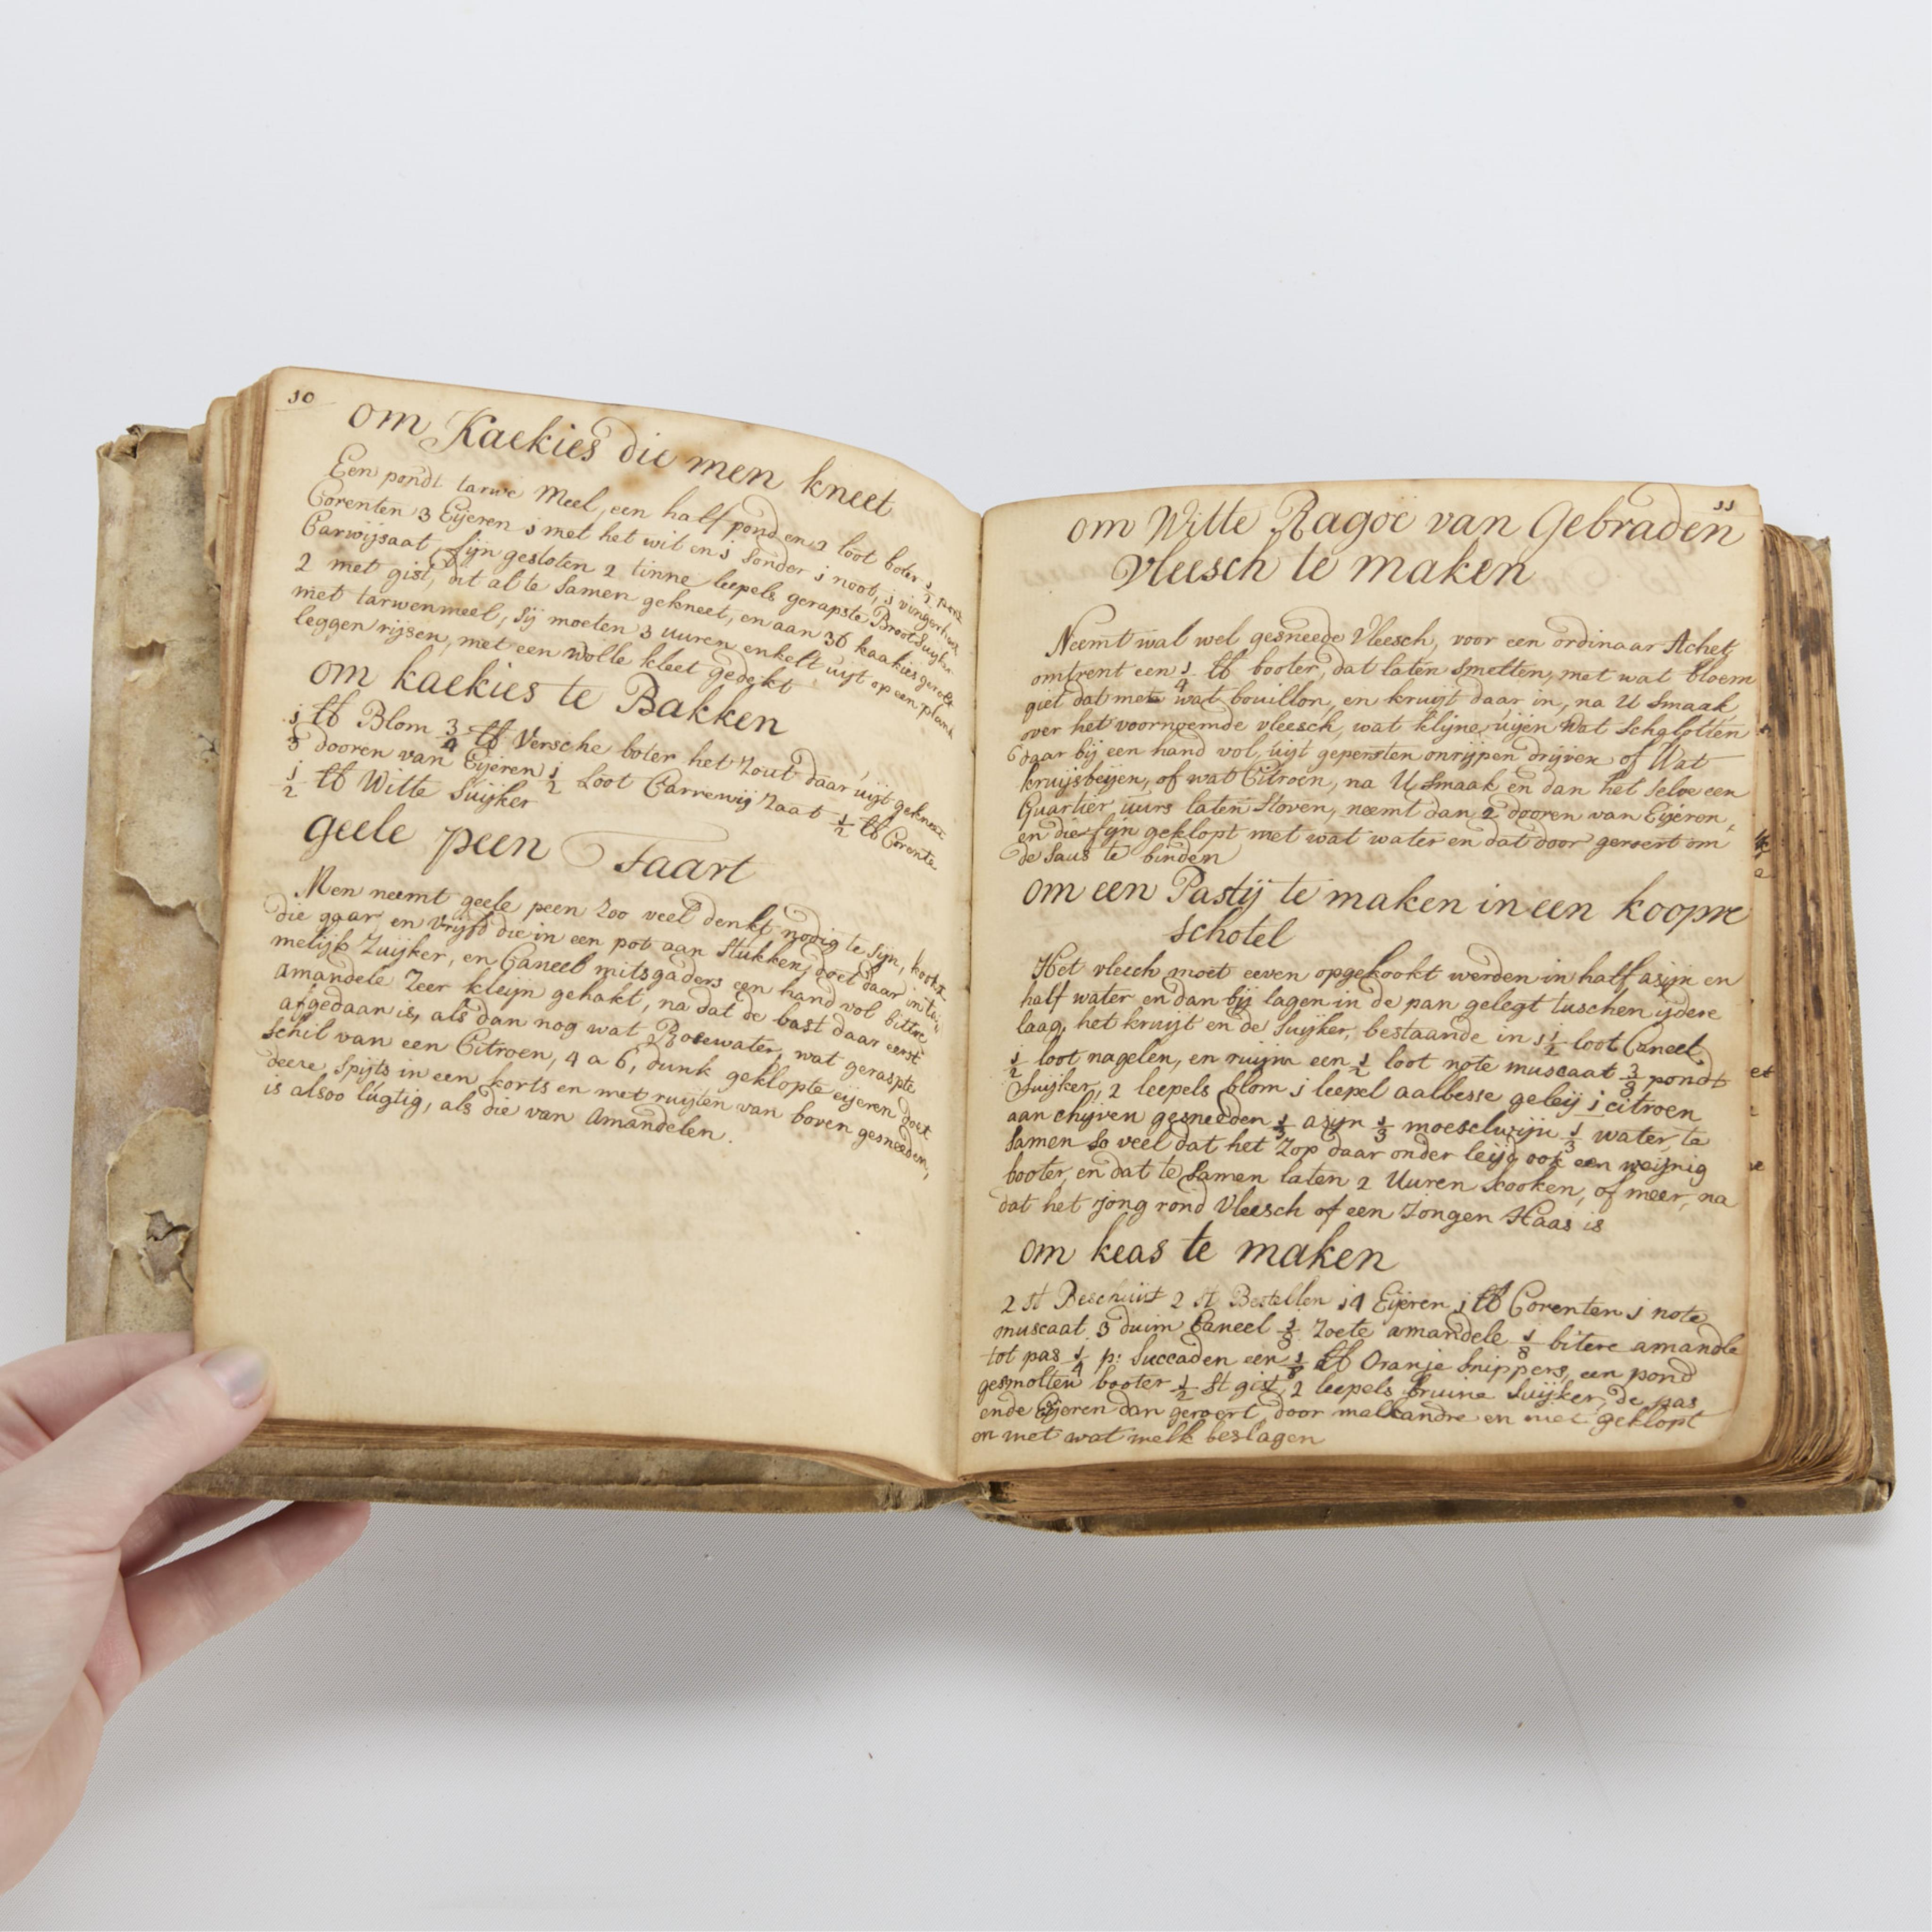 10
om Kaekies die men kneet
Een pondt tarwe Meel, een half pond en 2 loot boter ½ pont
Corenten 3 Eijeren 1 met het wit en 1 sonder 1 noot, 1 vingerhoet
Carwijsaat fijn gestoten 2 tinne leepels geraspte Broot Suijker
2 met gist, dit al te Samen gekneet, en aan 36 kaakies gerolt
met tarwenmeel, sij moeten 3 uuren enkelt uijt op een plank
leggen rijsen, met een wolle kleet gedekt
om kaekies te Bakken
1 lb Blom ¾ lb Versche boter het zout daar uijt gekneet
3 dooren van Eijeren ½ Loot Carrewij Zaat ½ lb Corente
½ lb Witte Suijker
geele peen Taart
Men neemt geele peen zoo veel denkt nodig te sijn, kookt
die gaar en vrijfd die in een pot aan stukken, doet daar in te
melijk Zuijker, en Caneel mitsgaders een hand vol bittre
amandele Zeer kleijn gehakt, na dat de bast daar eerst
afgedaan is, als dan nog wat Rosewater, wat geraspte
schil van een Citroen, 4 a 6, dunk geklopte eijeren doet
deese spijts in een korts en met ruijten van boven gesneeden,
is alsoo lugtig, als die van Amandelen.
11
om Witte Ragoe van Gebraden
Vleesch te maken
Neemt wat wel gesneede Vleesch, voor een ordinaar Achet
omtrent een ¼ lb booter, dat laten smelten, met wat bloem
giet dat met wat bouillon, en kruijt daar in, na U smaak
over het voornoemde vleesch, wat klijne uijen wat Schalotten
daar bij een hand vol, uijt gepersten onrijpen drijven of Wat
kruijsbeijen, of wat Citroen, na U smaak en dan het selve een
Quartier uurs laten stoven, neemt dan 2 dooren van Eijeren,
en die fijn geklopt met wat water en dat door geroert om
de Saus te binden
om een Pastij te maken in een koopre
schotel
Het vleesch moet eeven opgekookt werden in half asijn en
half water en dan bij lagen in de pan gelegt tuschen ijdere
laag, het kruijt en de Suijker, bestaande in 1½ loot Caneel
½ loot nagelen, en ruijm een ½ loot note muscaat ⅜ pondt
Suijker, 2 leepels blom 1 leepel aalbesse geleij 1 citroen
aan chijven gesneeden ⅓ asijn ⅓ moeselwijn ⅓ water, te
samen so veel dat het Zop daar onder leijd ook een weijnig
booter, en dat te samen laten 2 Uuren kooken, of meer, na
dat het jong rond Vleesch of een Jongen Haas is
om keas te maken
2 st Beschuijt 2 st Bestellen 14 Eijeren 1 lb Corenten 1 note
muscaat 3 duim Caneel ⅛ Zoete amandele ⅛ bitere amandle
tot pas ¼ p: Succaden een ⅛ lb Oranje Snippers, een pond
gesmolten booter ½ st gist, 2 leepels bruine Suijker, de
ende Eijeren dan geroert door malkandre en niet geklopt
en met wat melk beslagen